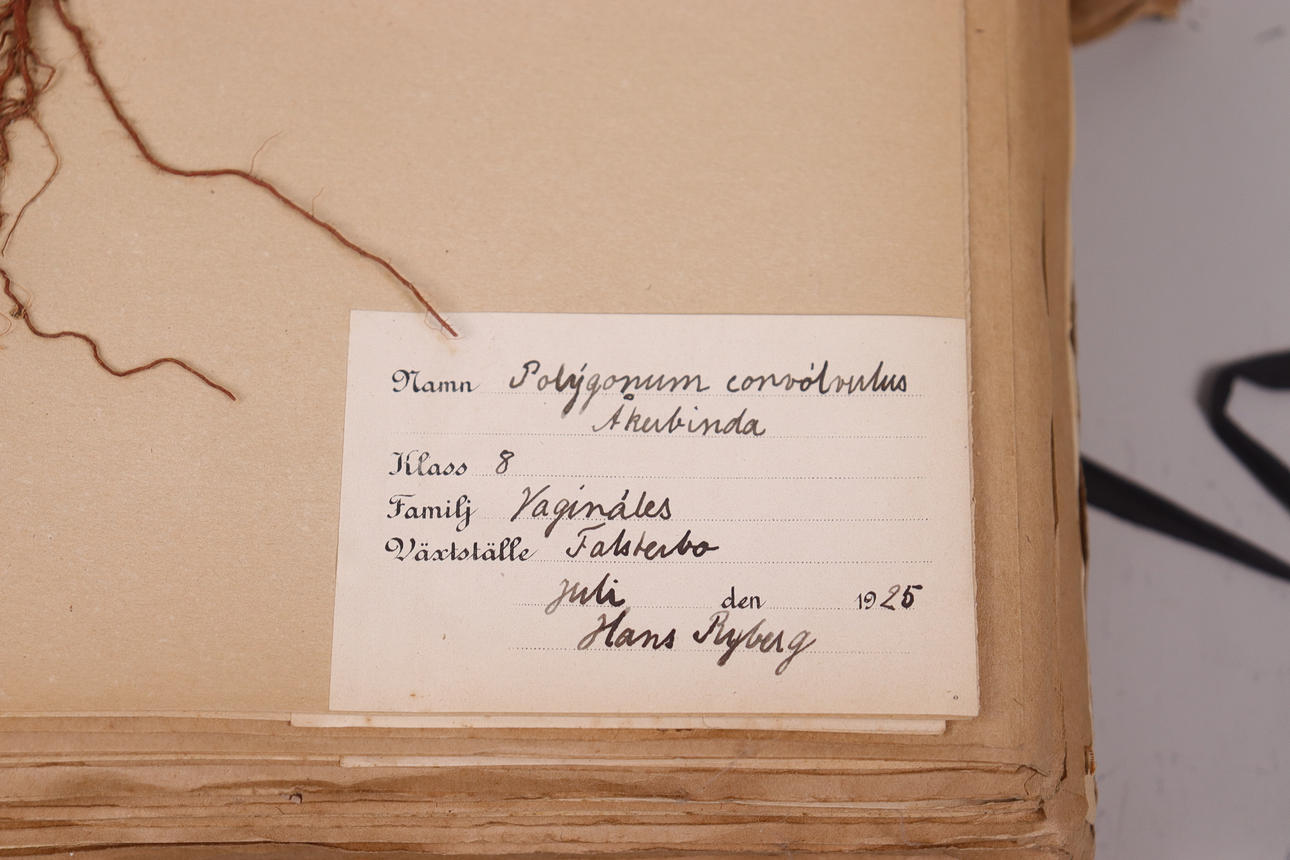 Namn Polýgonum convólvulus
Åkerbinda
Klass 8
Familj Vagináles
Växtställe Falsterbo
juli den 1925
Hans Ryberg